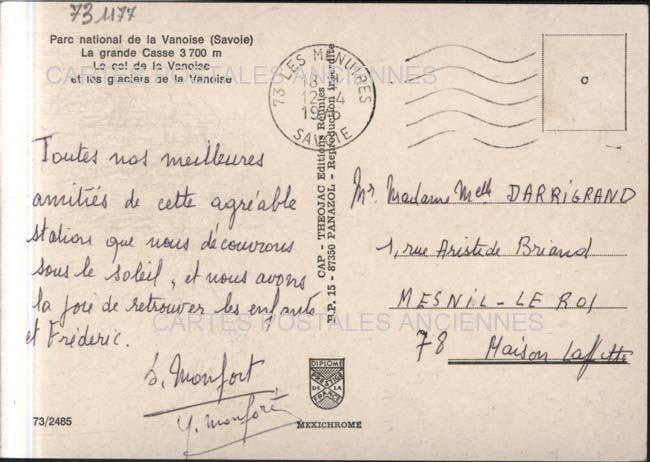 73 1177
Parc national de la Vanoise (Savoie)
La grande Casse 3 700 m
Le col de la Vanoise
et les glaciers de la Vanoise
CARTES POSTALES ANCIENNES
73 LES MENUIRES
18 H
12 - 4
SAVOIE
Toutes nos meilleures
amitiés de cette agréable
station que nous découvrons
sous le soleil, et nous avons
la joie de retrouver les enfants
et Fréderic.
S. Monfort
Y. Monfort
CAP - THEOJAC Editions Réunies
B.P. 15 - 87350 PANAZOL - Reproduction interdite
Mr. Madame Melle DARRIGRAND
1, rue Aristide Briand
MESNIL-LE ROI
78 Maison Laffitte
CARTES POSTALES ANCIENNES
DIPLOME
PRESTIGE
DE LA
FRANCE
MEXICHROME
73/2485